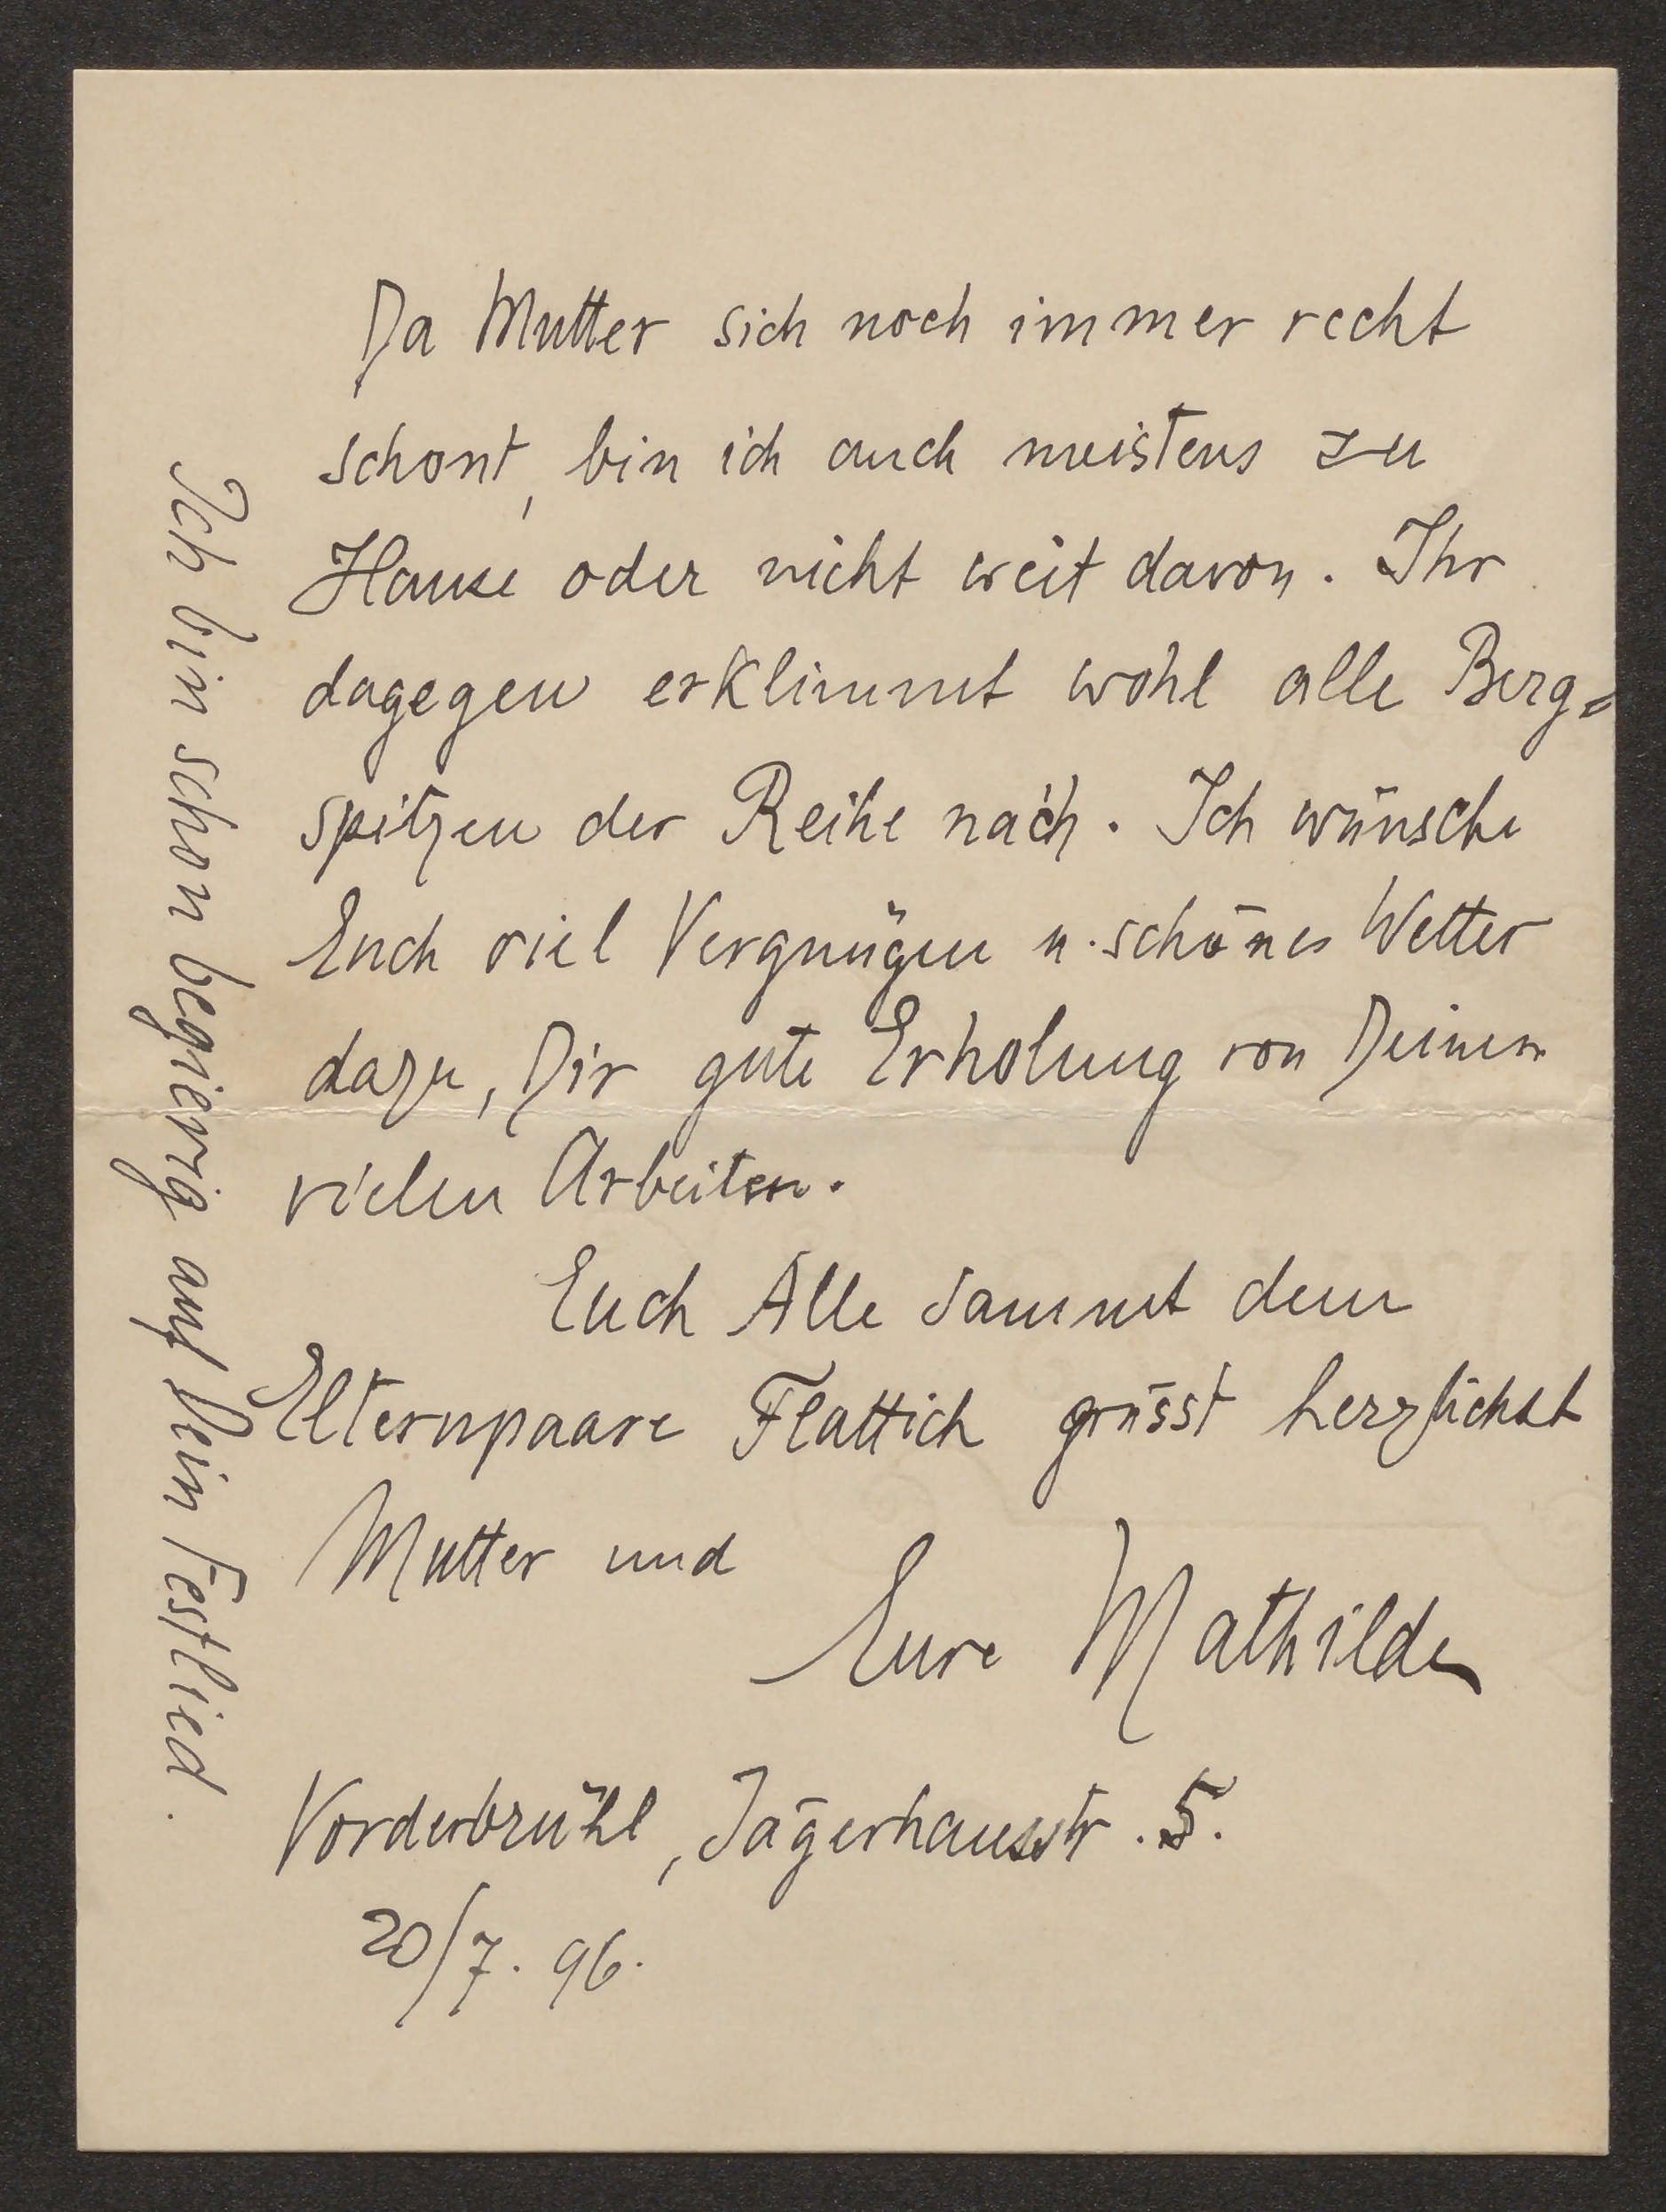 Da Mutter sich noch immer recht
schont, bin ich auch meistens zu
Hause oder nicht weit davon. Ihr
dagegen erklimmt wohl alle Berg=
spitzen der Reihe nach. Ich wünsche
Euch viel Vergnügen u. schönes Wetter
dazu, Dir gute Erholung von Deinen
vielen Arbeiten.
Euch Alle sammt dem
Elternpaare Flattich grüsst herzlichst
Mutter und
Eure Mathilde
Vorderbrühl, Jägerhausstr. 5.
20/7. 96.
Ich bin schon begierig auf Dein Festlied.